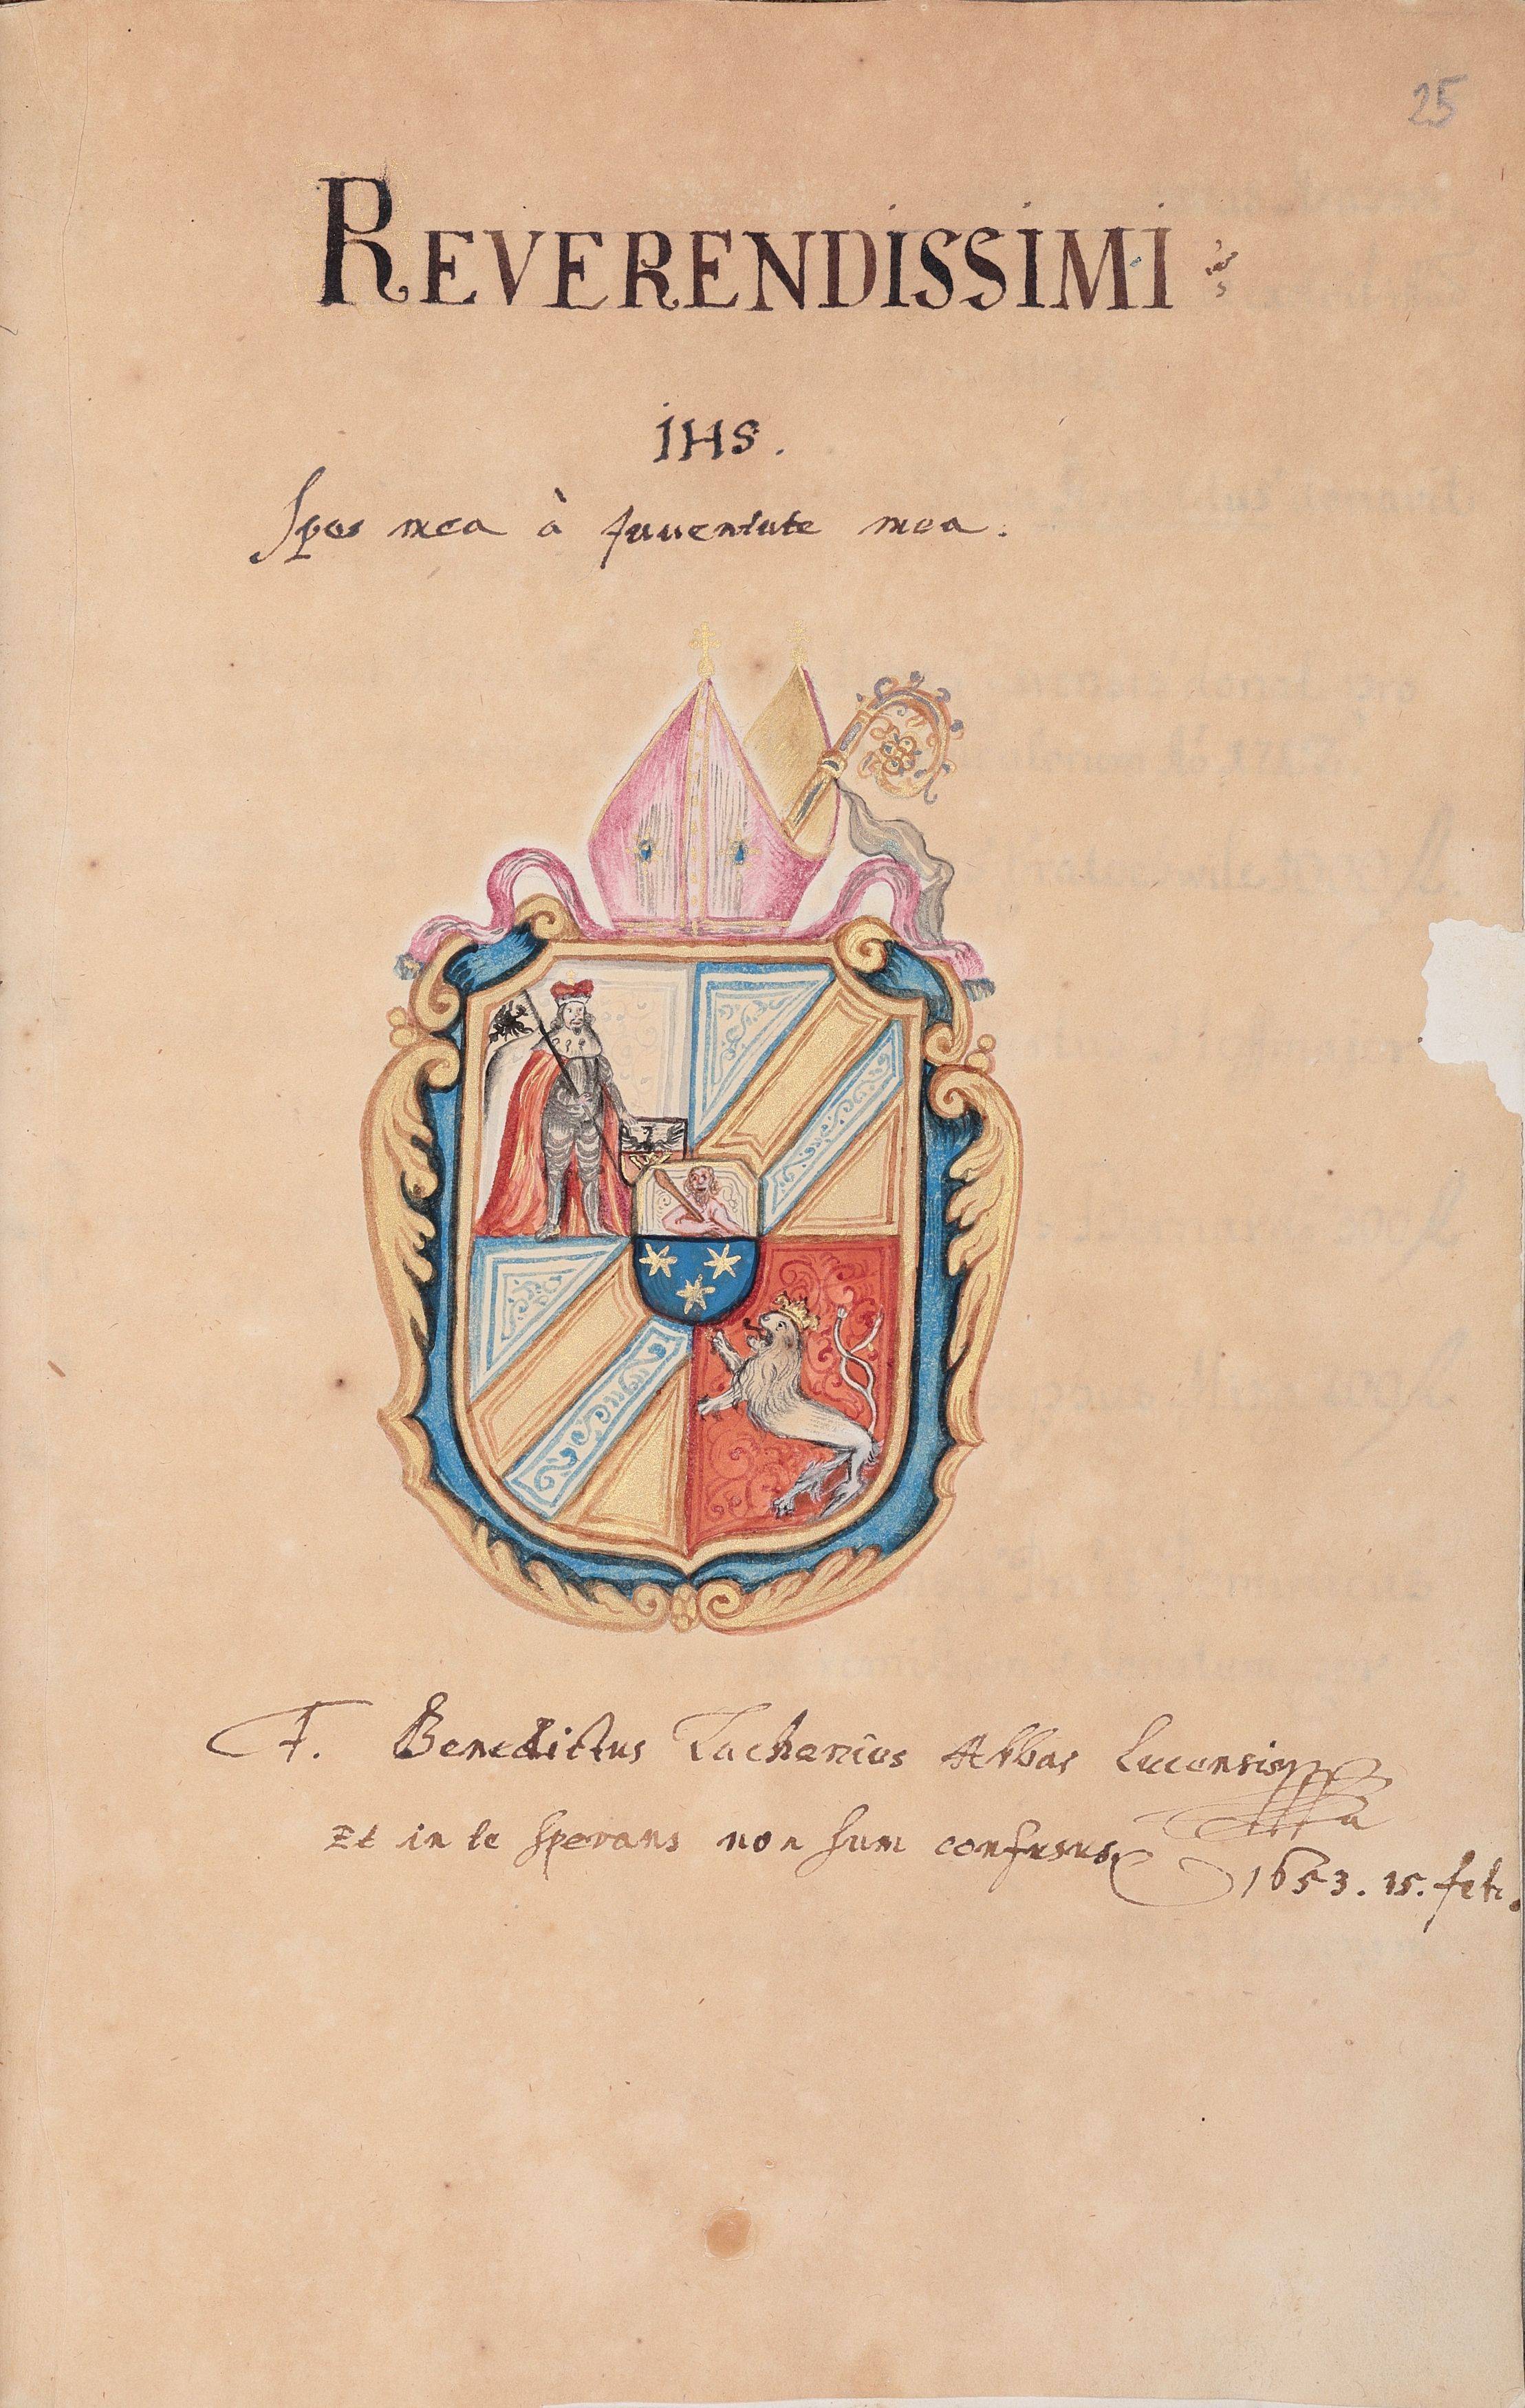 25
REVERENDISSIMI
IHS.
Spes mea à Juventute mea.
F. Benedictus Zachanius Abbas Lucensis
Et in te sperans non sum confusus
1653. 15. feb.